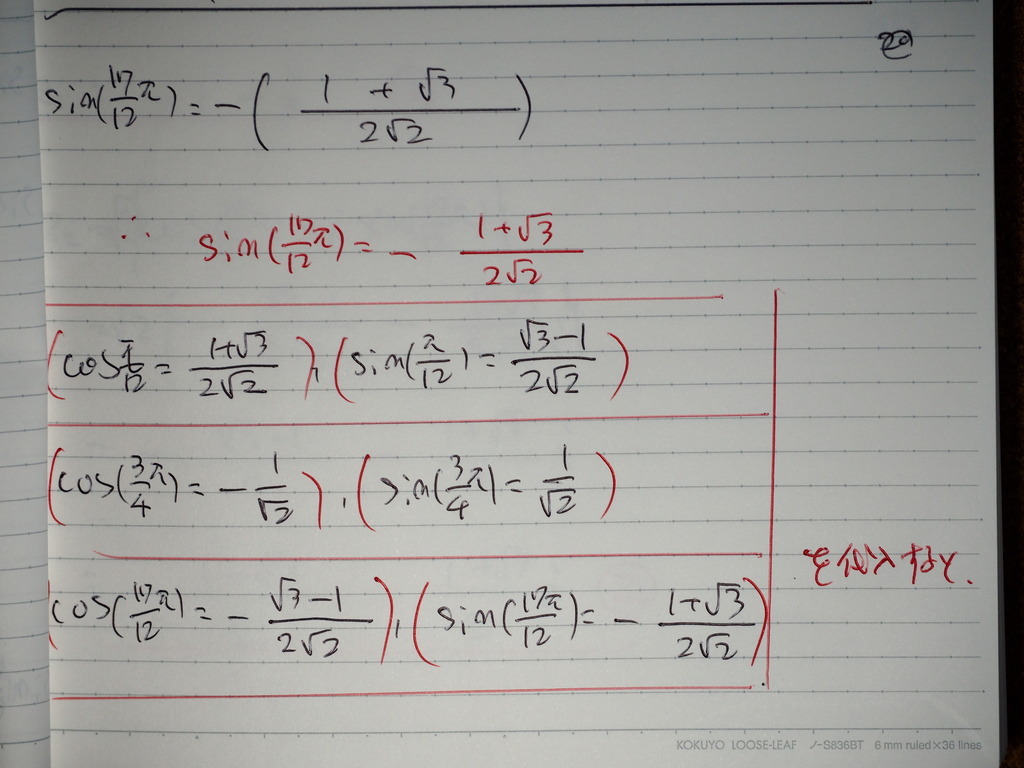 20
sin(17/12 π) = -( (1 + √3)/(2√2) )
∴ sin(17/12 π) = - (1+√3)/(2√2)
(cos π/12 = (1+√3)/(2√2)), (sin(π/12) = (√3-1)/(2√2))
(cos(3/4 π) = - 1/√2), (sin(3/4 π) = 1/√2)
を代入すると.
(cos(17π/12) = - (√3-1)/(2√2)), (sin(17π/12) = - (1+√3)/(2√2))
KOKUYO LOOSE-LEAF ノ-S836BT 6 mm ruled×36 lines